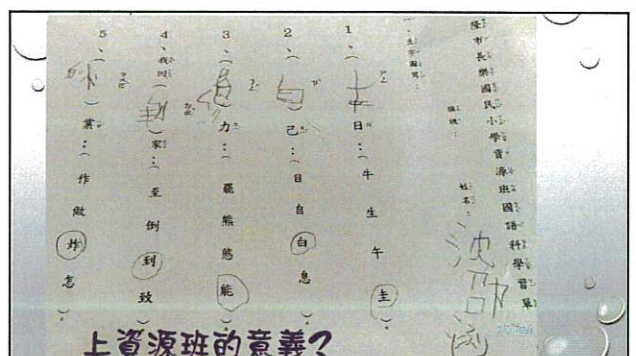 隆市長樂國民小學資源班國語科學習單
班級： 姓名：
1、（ ）日：（牛 生 午 圭）。
2、（白）己：（目 自 白 息）。
3、（ ）力：（罷 熊 態 能）。
4、我回（到）家：（至 倒 到 致）。
5、（ ）業：（作 做 炸 怎）。
上資源班的意義?